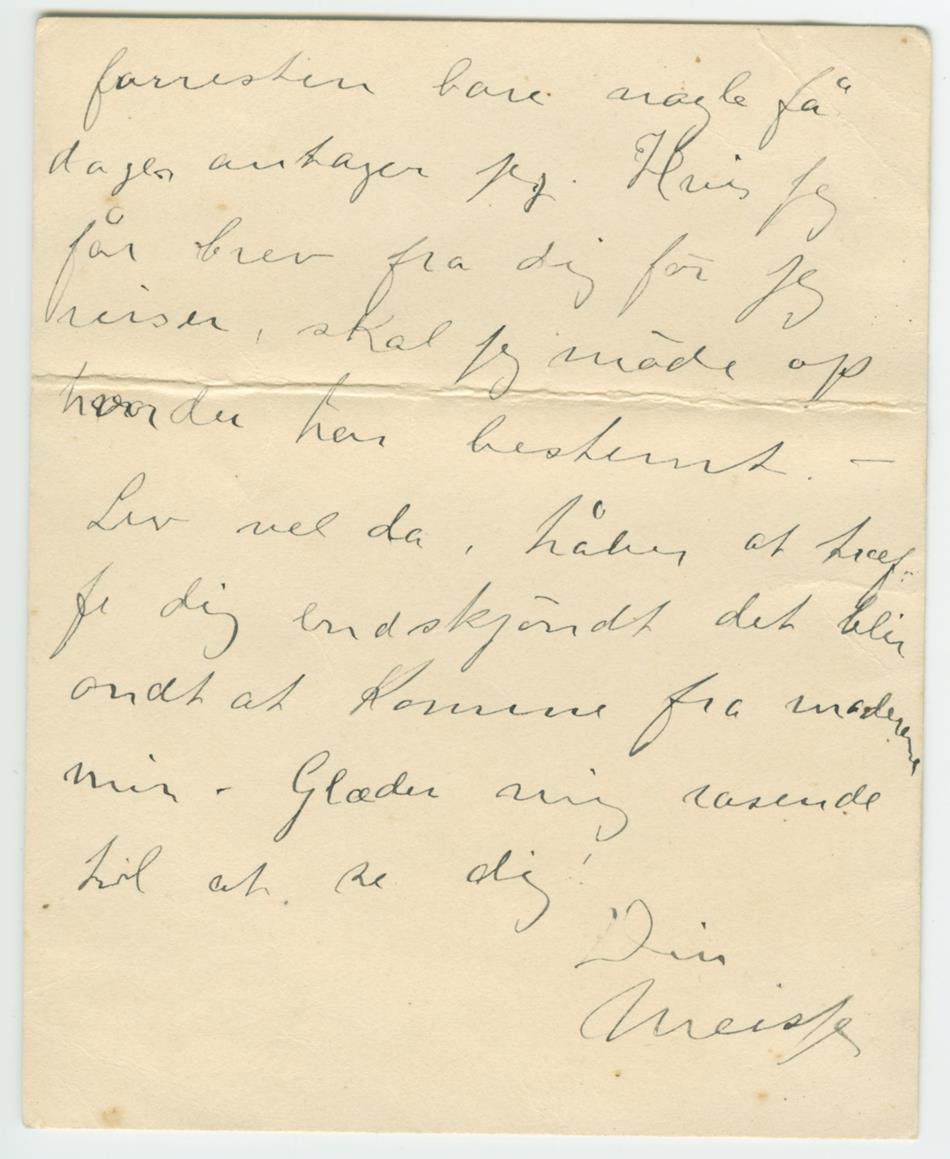 forresten bare nogle få
dager, antager jeg. Hvis jeg
får brev fra dig för jeg
reiser, skal jeg möde op
hvor du har bestemt. –
Lev vel da, håber at træf-
fe dig endskjöndt det blir
ondt at komme fra moderen
min. Glæder mig rasende
til at se dig!
Din